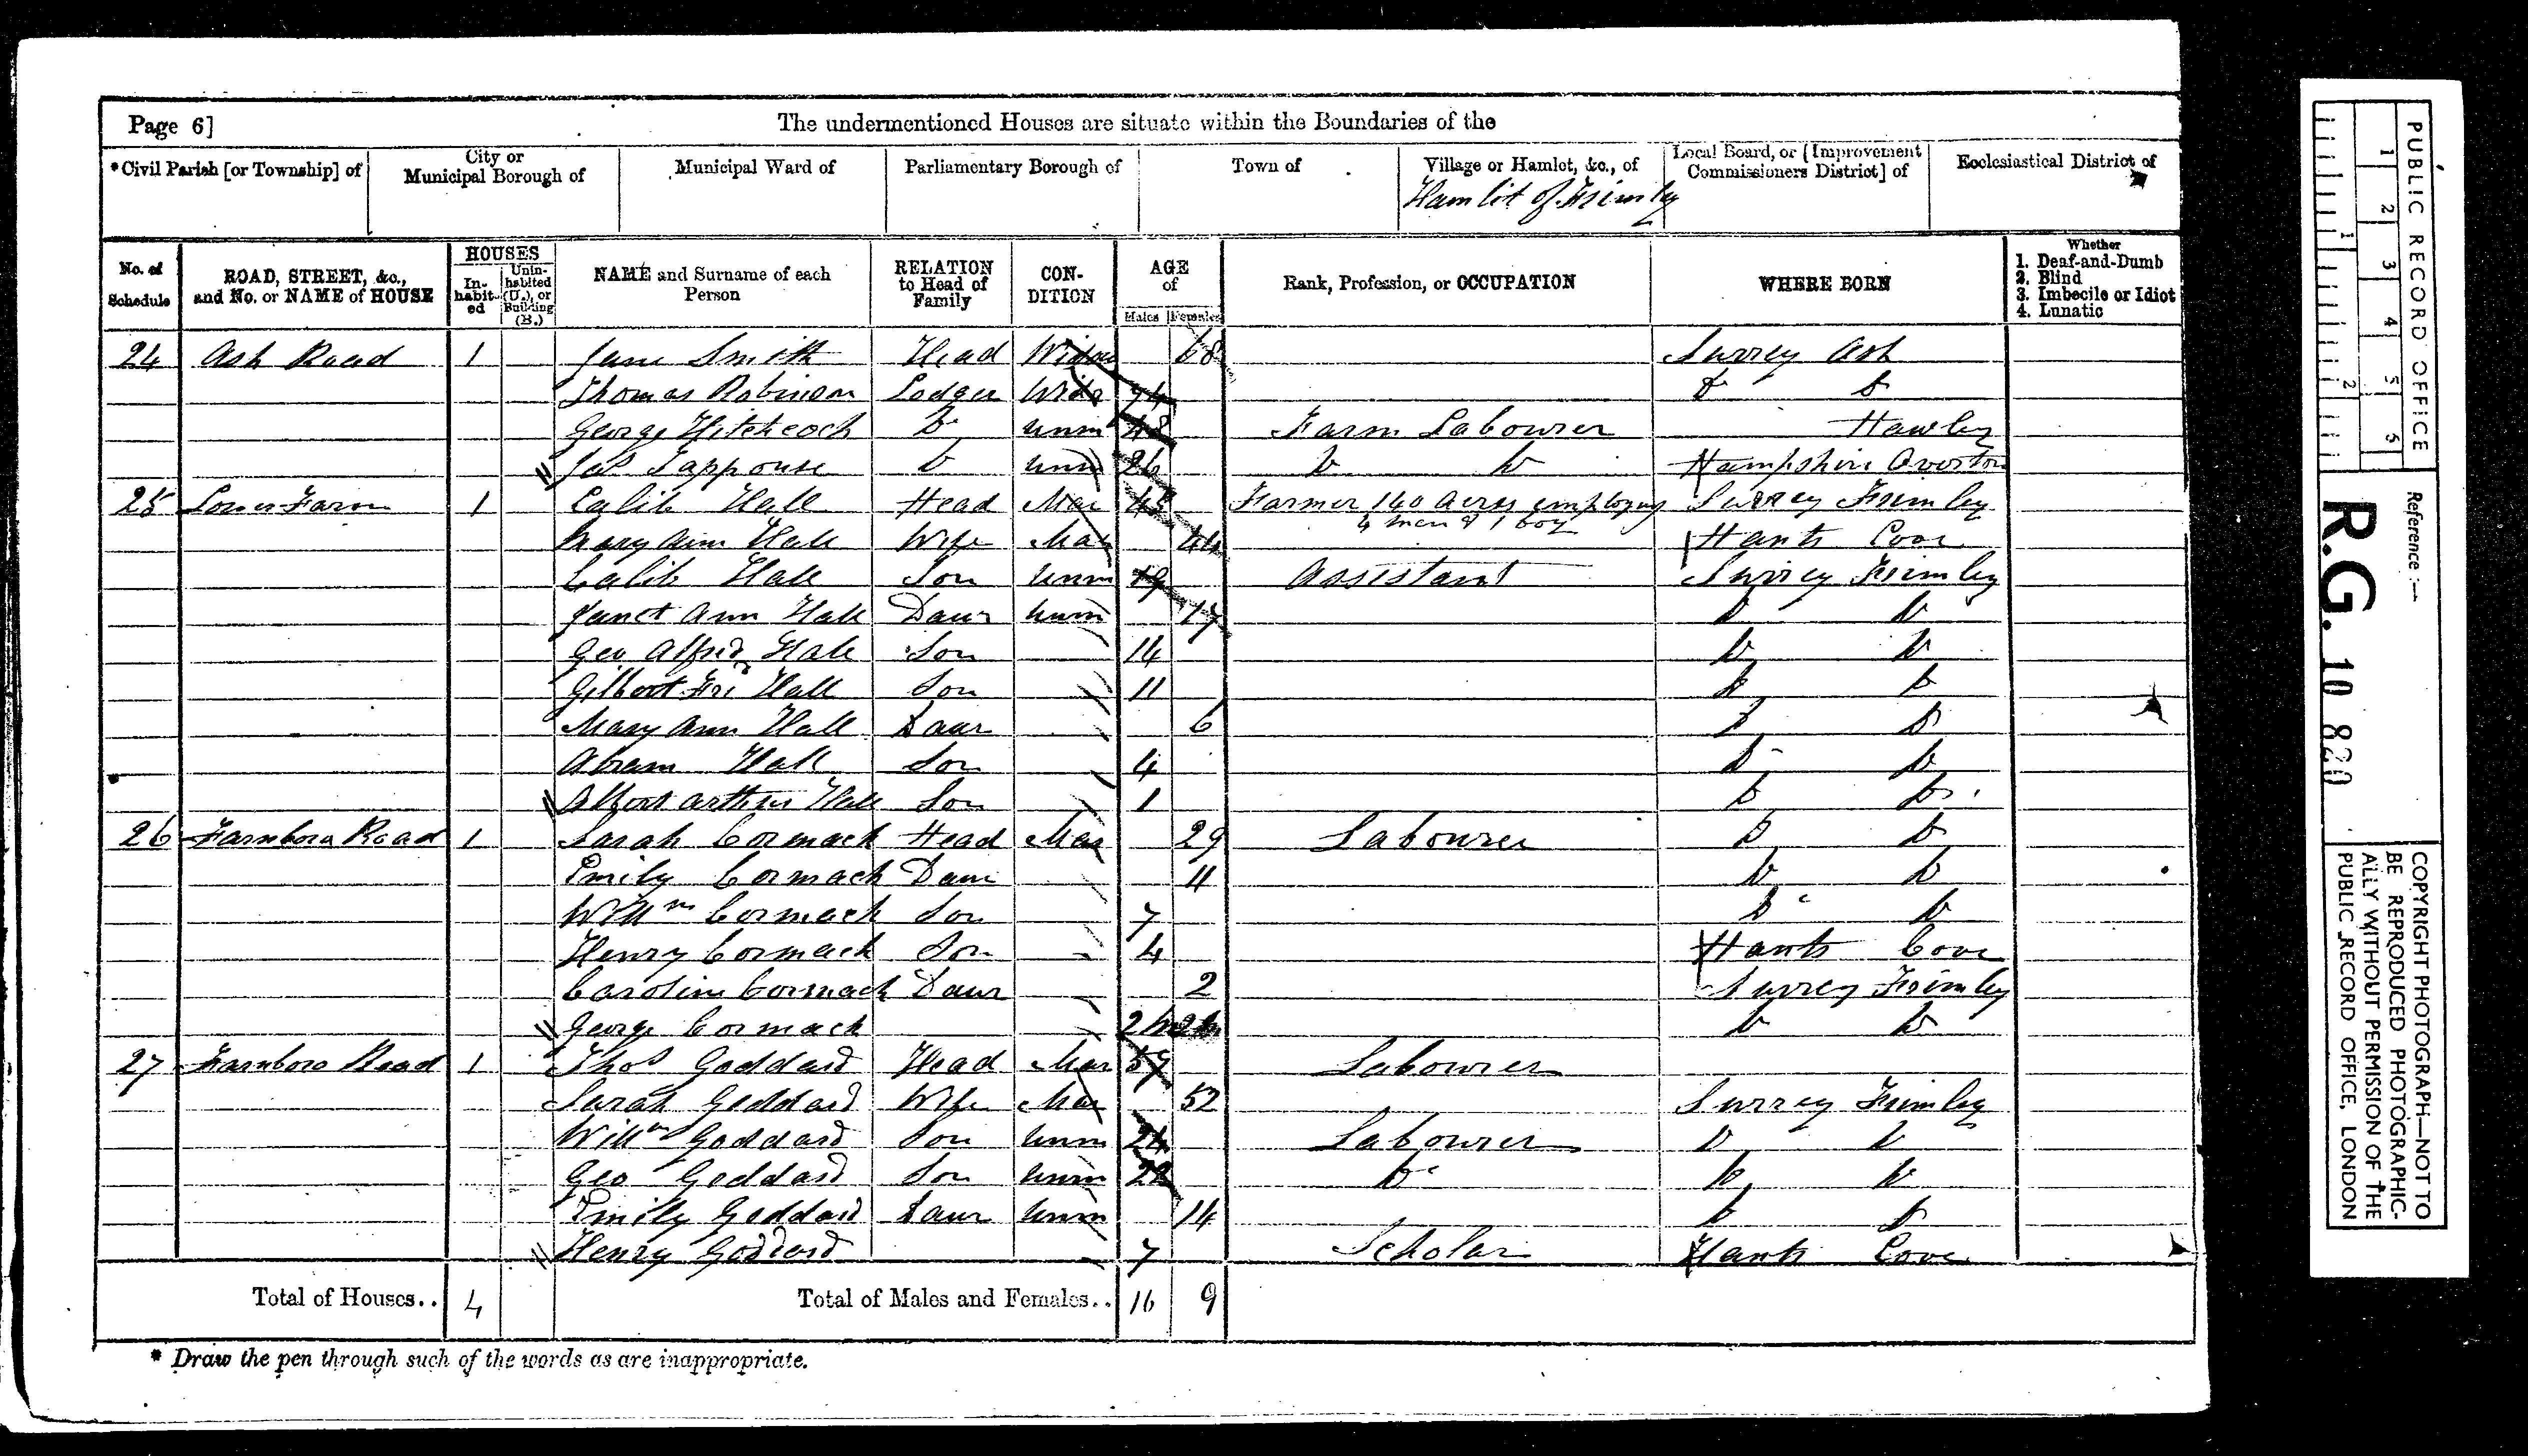 Page 6]
The undermentioned Houses are situate within the Boundaries of the
*Civil Parish [or Township] of
City or Municipal Borough of
Municipal Ward of
Parliamentary Borough of
Town of
Village or Hamlet, &c., of
Hamlit of Frimley
Local Board, or [Improvement Commissioners District] of
Ecclesiastical District of
No. of Schedule
ROAD, STREET, &c., and No. or NAME of HOUSE
HOUSES
In-habit-ed
Unin-habited (U.), or Building (B.)
NAME and Surname of each Person
RELATION to Head of Family
CON-DITION
AGE of
Males Females
Rank, Profession, or OCCUPATION
WHERE BORN
Whether
1. Deaf-and-Dumb
2. Blind
3. Imbecile or Idiot
4. Lunatic
24 Ash Road 1 Jane Smith Head Widow 68 Surrey Ash
Thomas Robinson Lodger Widr 74 Do Do
George Hitchcock Do Unm 48 Farm Labourer Hawley
Jas Tapphouse Do Unm 26 Do Do Hampshire Overton
25 Farm 1 Calib Hall Head Mar 45 Farmer 140 acres employing Surrey Frimley
4 men & 1 boy
Mary Ann Hall Wife Mar 44 Hants Cove
Calib Hall Son Unm 19 Assistant Surrey Frimley
Janet Ann Hall Daur Unm 17 Do Do
Geo Alfred Hall Son 14 Do Do
Gilbert Hall Son 11 Do Do
Mary Ann Hall Daur 6 Do Do
Abram Hall Son 4 Do Do
Albert Arthur Hall Son 1 Do Do
26 Farnboro Road 1 Sarah Cormack Head Mar 29 Labourer Do Do
Emily Cormack Daur 11 Do Do
Willm Cormack Son 7 Do Do
Henry Cormack Son 4 Hants Cove
Caroline Cormack Daur 2 Surrey Frimley
George Cormack 2m Do Do
27 Farnboro Road 1 Thos Goddard Head Mar 59 Labourer
Sarah Goddard Wife Mar 52 Surrey Frimley
Willm Goddard Son Unm 24 Labourer Do Do
Geo Goddard Son Unm 22 Do Do Do
Emily Goddard Daur Unm 14 Do Do
Henry Goddard 7 Scholar Hants Cove
Total of Houses.. 4 Total of Males and Females.. 16 9
* Draw the pen through such of the words as are inappropriate.
PUBLIC RECORD OFFICE
1 2 3 4 5 6
1 2
Reference :—
R.G. 10 820
COPYRIGHT PHOTOGRAPH—NOT TO
BE REPRODUCED PHOTOGRAPHIC-
ALLY WITHOUT PERMISSION OF THE
PUBLIC RECORD OFFICE, LONDON